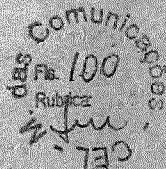 das Comunicações
Fls. 100
Rubrica:
CEL